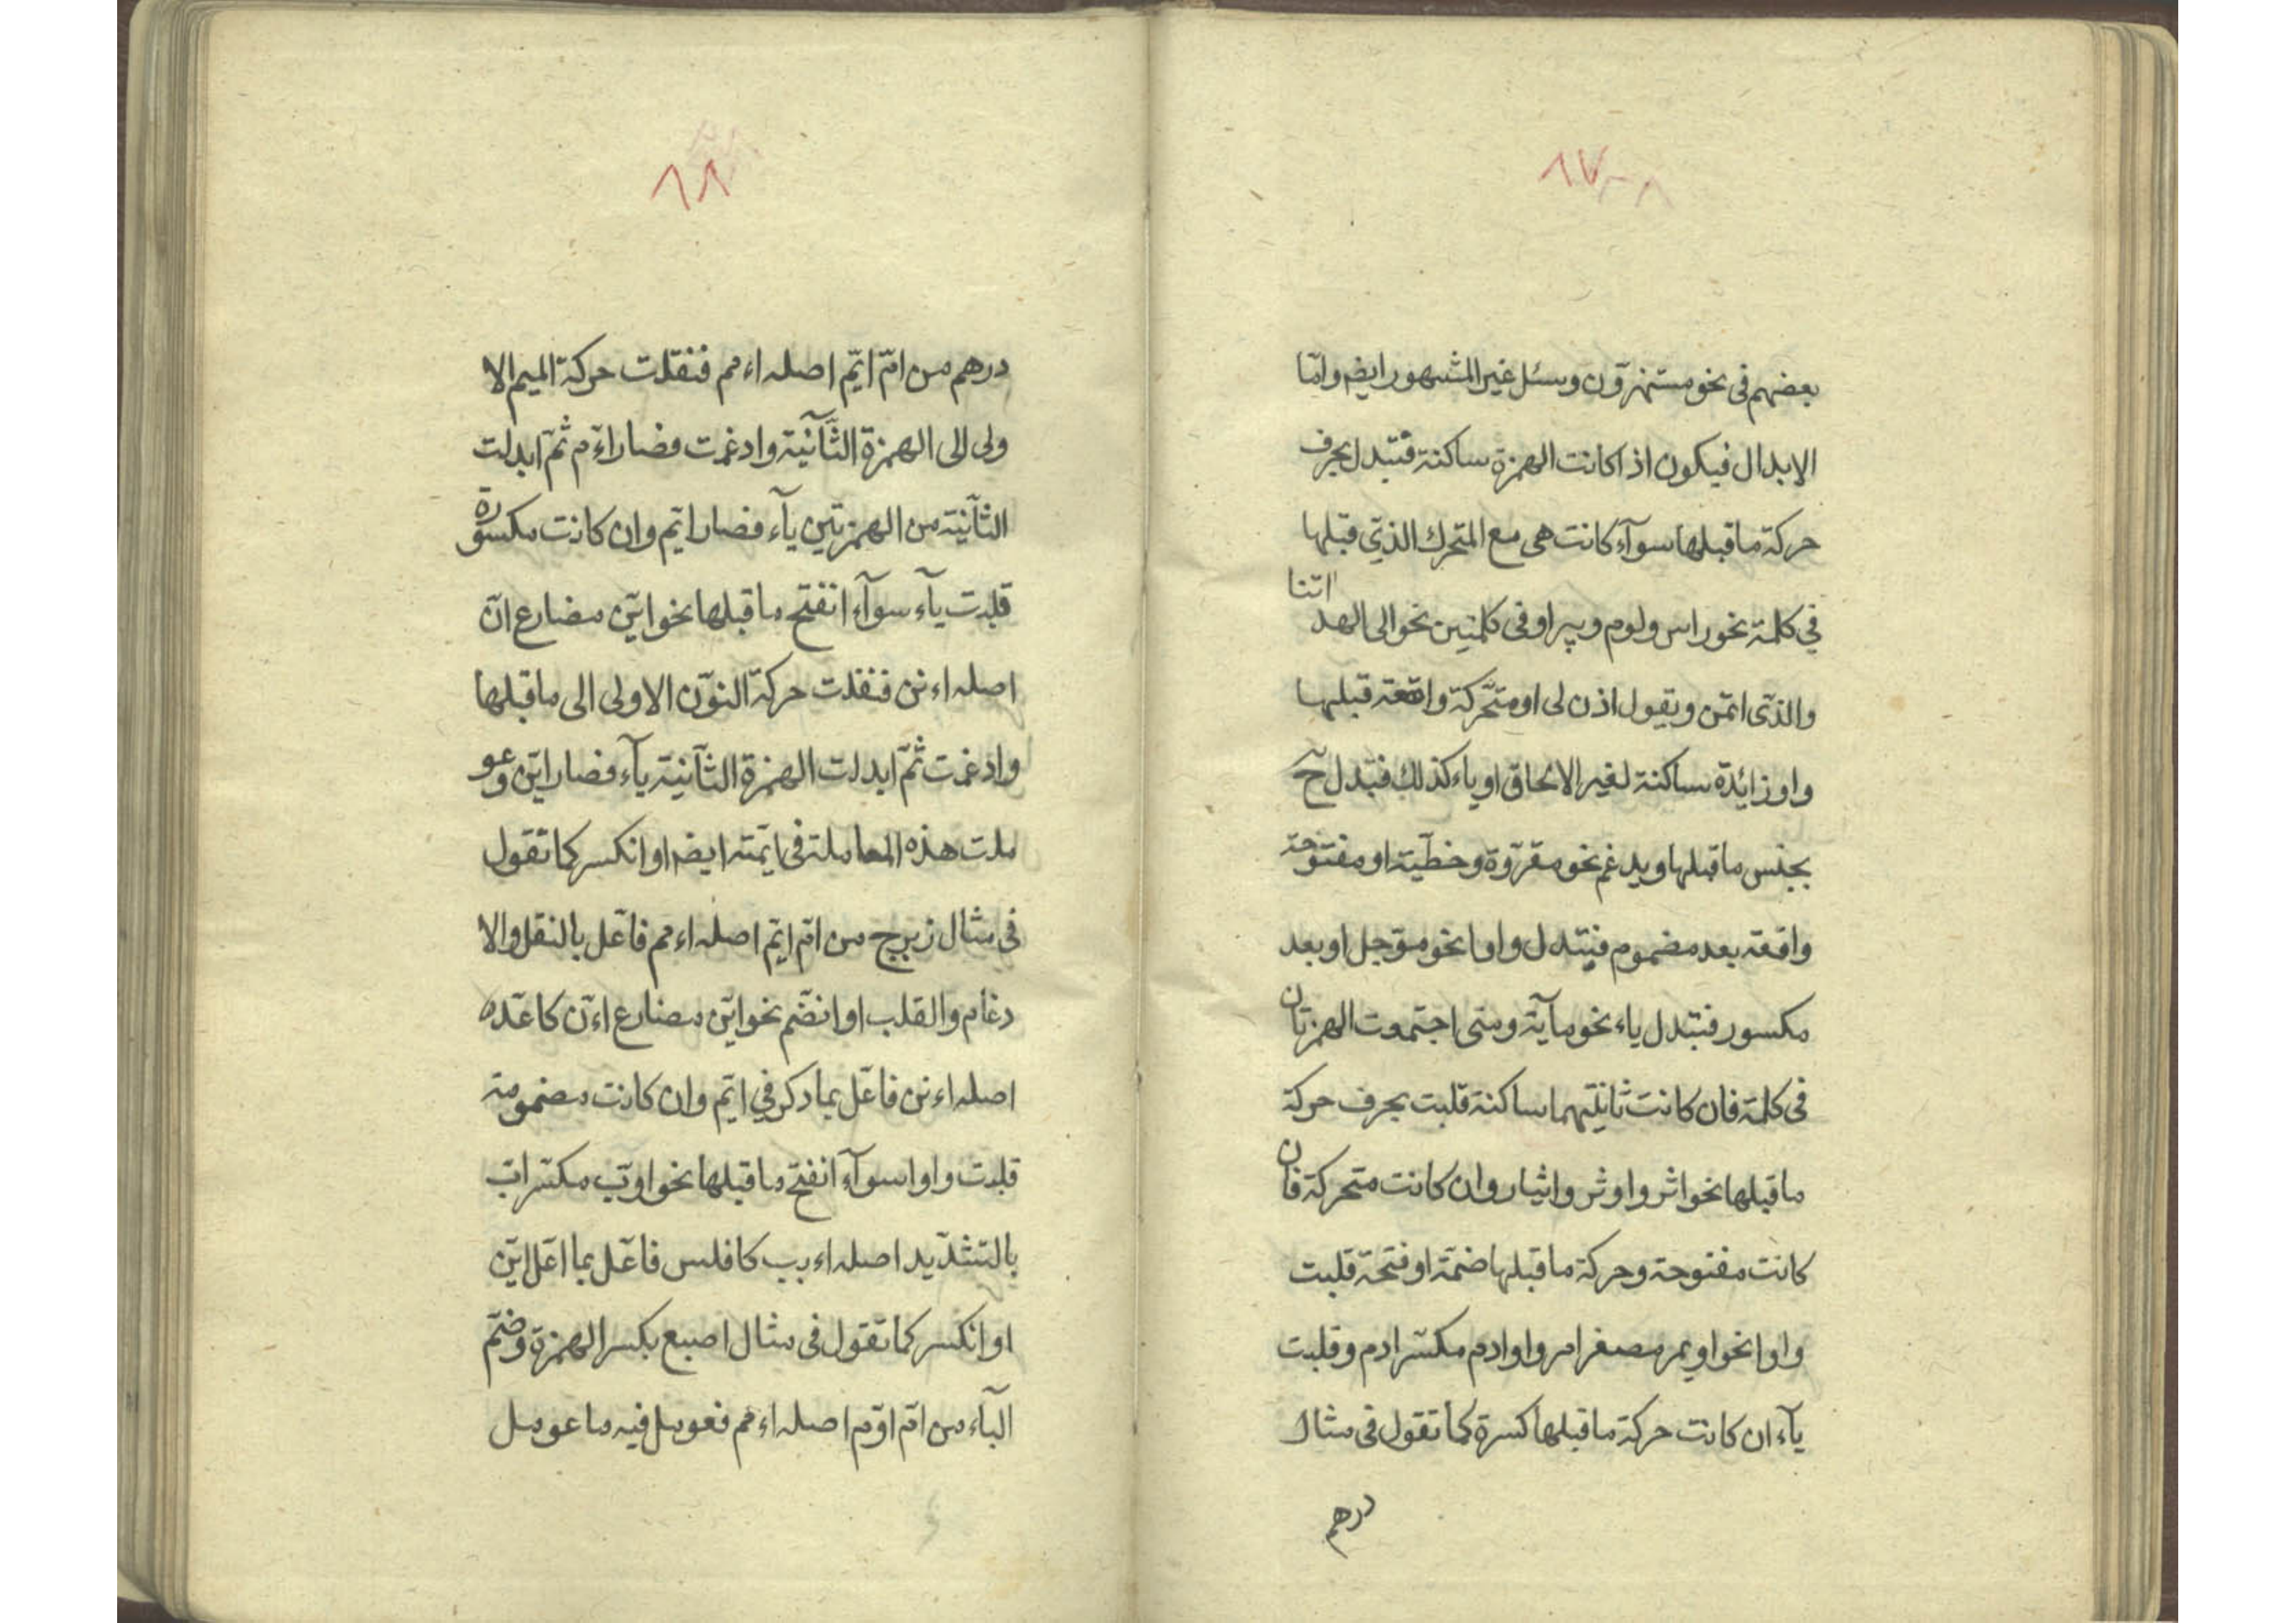 ٨٧
بعضهم فى نحو مستهزؤن وسئل غير المشهور ايضه وامّا
الابدال فيكون اذا كانت الهمزة ساكنة فتبدل بحرف
حركة ما قبلها سوآء كانت هى مع المتحرك الذى قبلها
فى كلمة نحو راس ولوم وبير او فى كلمتين نحو الى الهداتنا
والذى اتمن ويقول اذن لى او متحركة واقعة قبلها
واو زائدة ساكنة لغير الالحاق او ياء كذلك فتبدل ح
بجنس ما قبلها ويدغم نحو مقروّة وخطيّة او مفتوحة
واقعة بعد مضموم فيتبدل واوا نحو موّجل او بعد
مكسور فتبدل ياء نحو مآية ومتى اجتمعت الهمزتان
فى كلمة فان كانت ثانيتهما ساكنة قلبت بحرف حركة
ما قبلها نحو اثر واوثر وايثار وان كانت متحركة فان
كانت مفتوحة وحركة ما قبلها ضمة او فتحة قلبت
واوا نحو اويمر مصغر امر واوادم مكسّر ادم وقلبت
يآء ان كانت حركة ما قبلها كسرة كما تقول فى مثال
درهم
٨٨
درهم من امّ ايّم اصله اءمم فنقلت حركة الميم الا
ولى الى الهمزة الثّآنية وادغمت فصار اءمّ ثمّ ابدلت
الثآنية من الهمزتين يآء فصار ايّم وان كانت مكسورة
قلبت يآء سوآء انفتح ما قبلها نحو ايّن مضارع انّ
اصله اءنن فنقلت حركة النوّن الاولى الى ما قبلها
وادغمت ثمّ ابدلت الهمزة الثآنية يآء فصار ايّن وعو
ملت هذه المعاملة فى ايمّته ايضه او انكسر كما تقول
فى مثال زبرج من امّ ايّم اصله اءمم فاعّل بالنقل والا
دغام والقلب او انضّم نحو ايّن مضارع اءنّ كاعّده
اصله اءنن فاعّل بما ذكر فى ايّم وان كانت مضمومة
قلبت واوا سوآء انفتح ما قبلها نحو اوبّ مكسّر ابّ
بالتشدّيد اصله اءبب كافلس فاعّل بما اعّل ايّن
او انكسر كما تقول فى مثال اصبع بكسر الهمزة وضمّ
البآء من امّ اوّم اصله اءمم فعومل فيه ما عومل